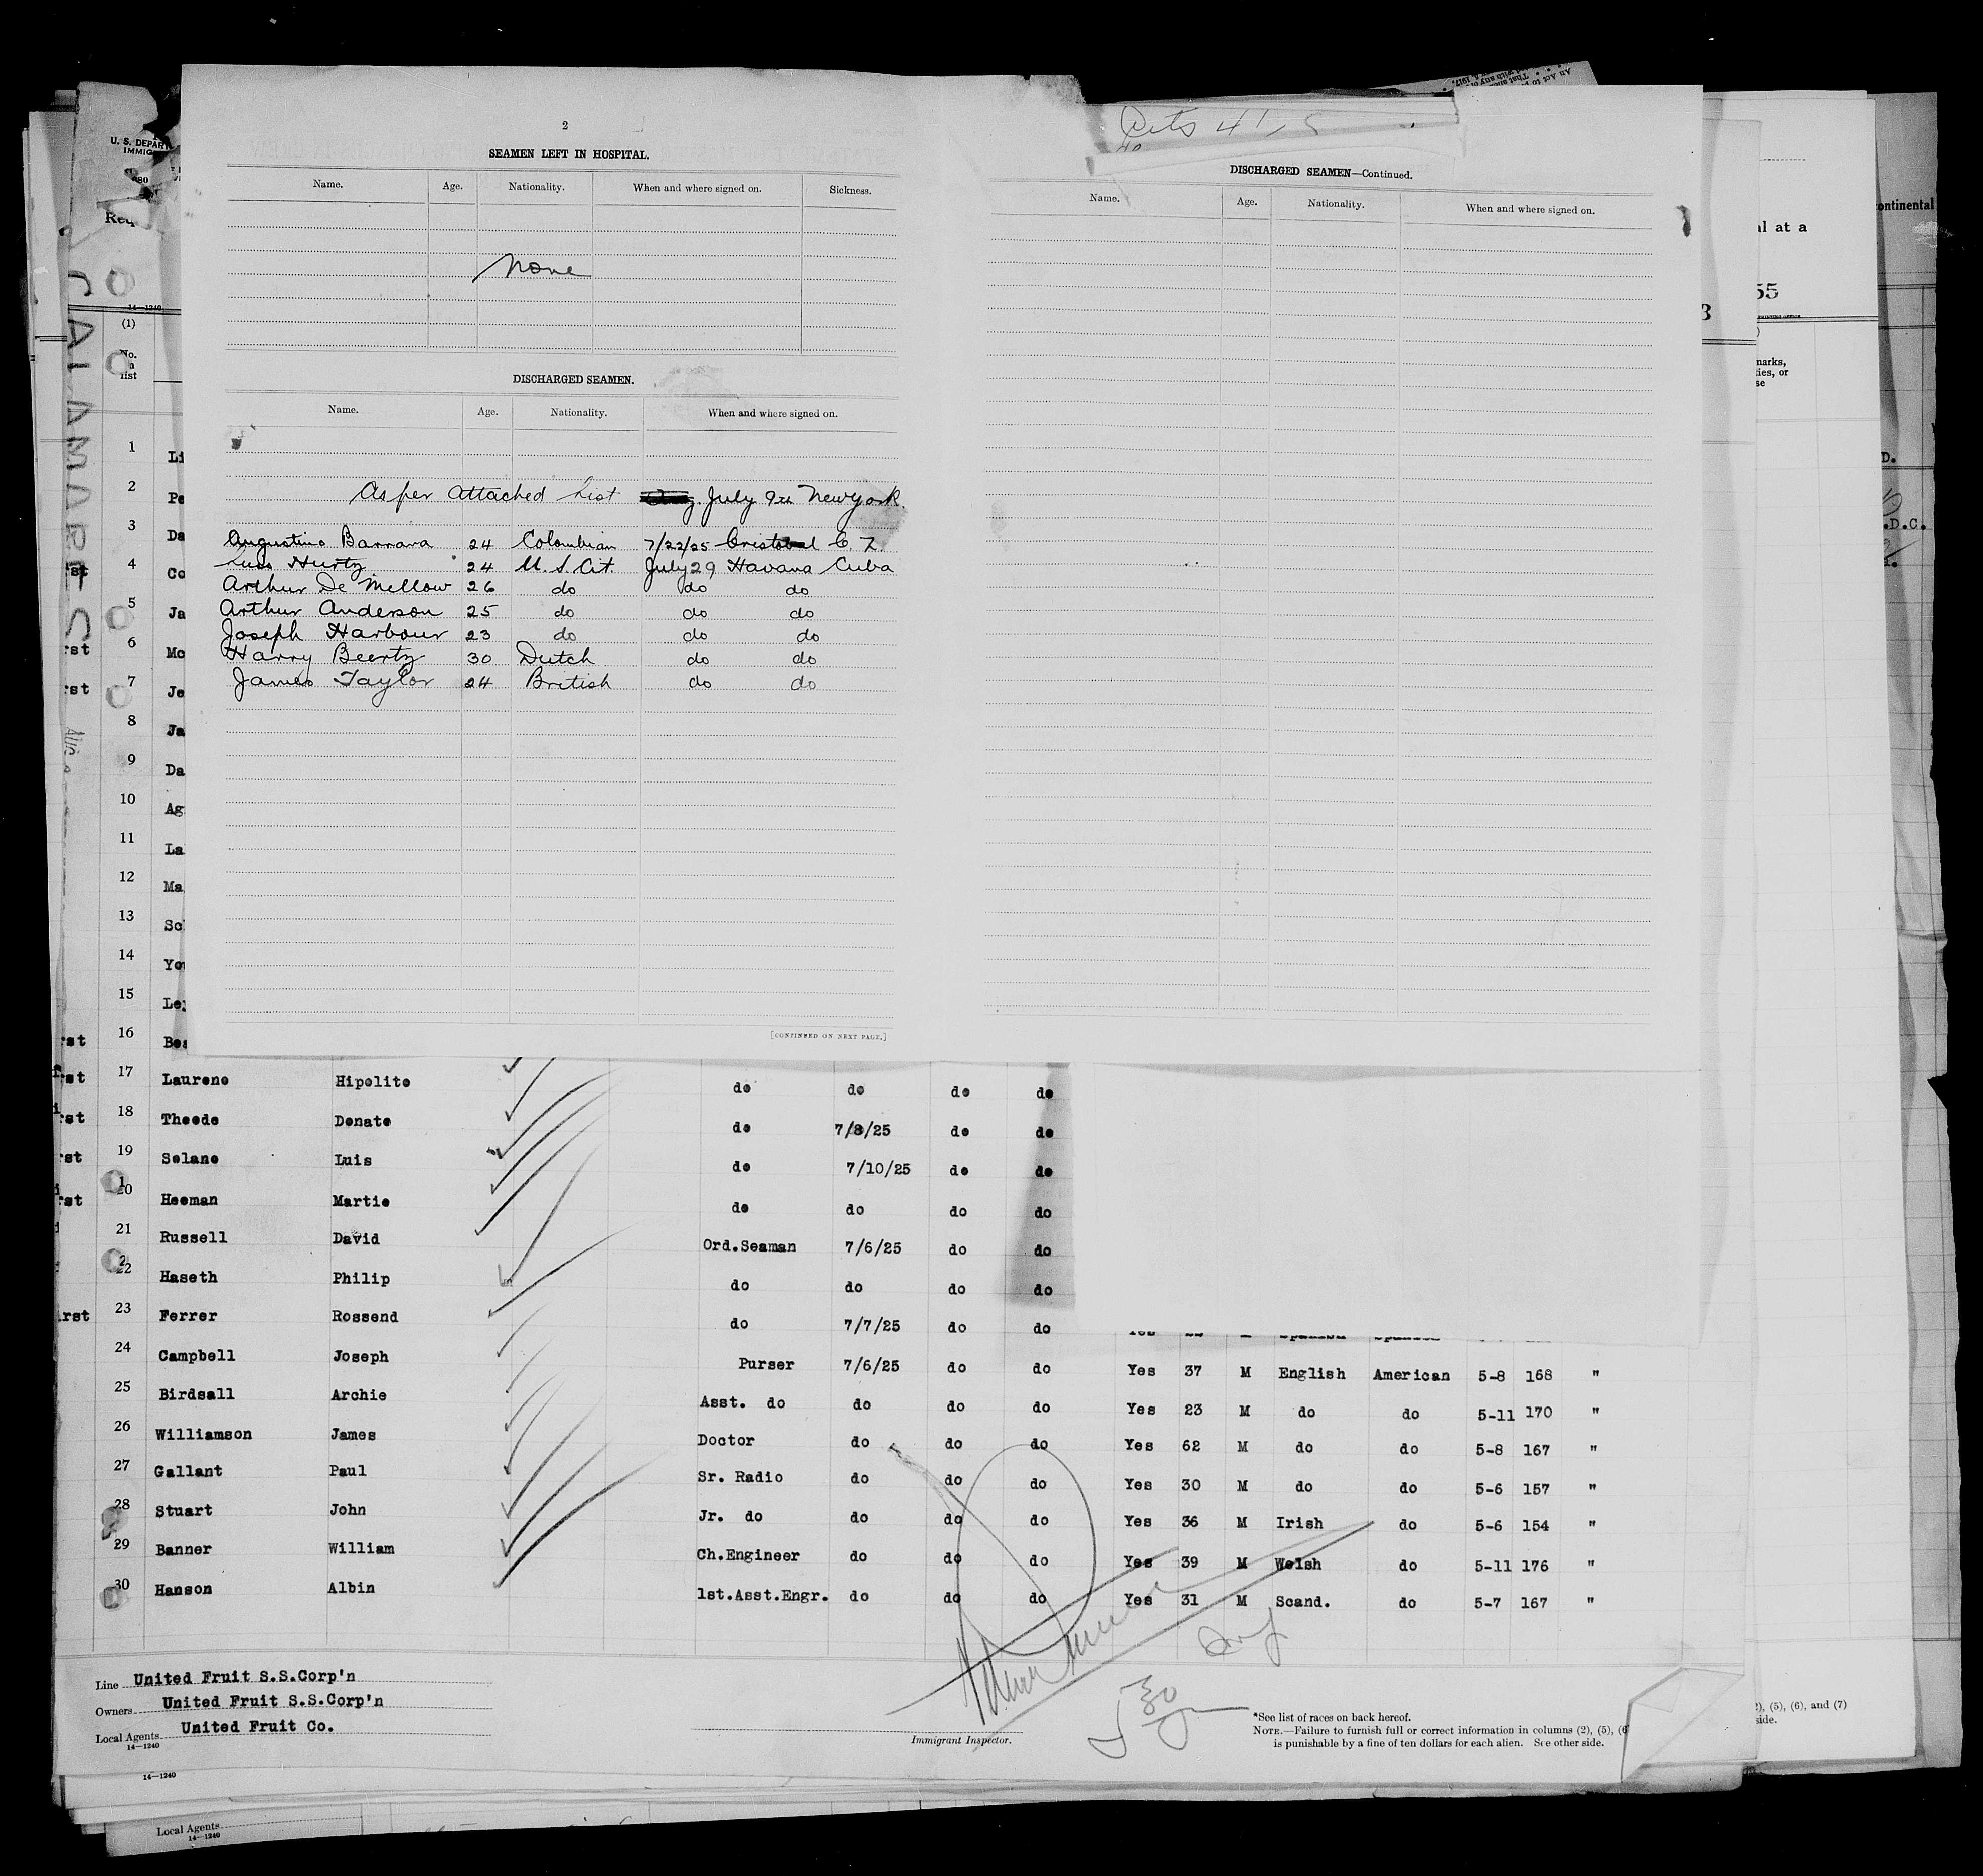 2
SEAMEN LEFT IN HOSPITAL.
Name. Age. Nationality. When and where signed on. Sickness.
None
DISCHARGED SEAMEN.
Name. Age. Nationality. When and where signed on.
As per attached List July 9th New York
Augustino Barrara 24 Colombian 7/22/25 Cristobal C. Z.
Hurtz 24 U.S. Cit. July 29 Havana Cuba
Arthur De Mellow 26 do do do
Arthur Anderson 25 do do do
Joseph Harbour 23 do do do
Harry Beertz 30 Dutch do do
James Taylor 24 British do do
[CONTINUED ON NEXT PAGE.]
DISCHARGED SEAMEN—Continued.
Name. Age. Nationality. When and where signed on.
U. S. DEPART
IMMIG
14—1240
(1)
No.
list
CALAMARES
1 Li
2 Pe
3 Da
4 Co
5 Ja
6 Mc
7 Je
8 Ja
9 Da
10 Ag
11 La
12 Ma
13 Sc
14 Yo
15 Le
16 Bea
17 Laurene Hipolite do do do do
18 Theede Denate do 7/8/25 do do
19 Selane Luis do 7/10/25 do do
20 Heeman Martie do do do do
21 Russell David Ord.Seaman 7/6/25 do do
22 Haseth Philip do do do do
23 Ferrer Rossend do 7/7/25 do do
24 Campbell Joseph Purser 7/6/25 do do Yes 37 M English American 5-8 168 "
25 Birdsall Archie Asst. do do do do Yes 23 M do do 5-11 170 "
26 Williamson James Doctor do do do Yes 62 M do do 5-8 167 "
27 Gallant Paul Sr. Radio do do do Yes 30 M do do 5-6 157 "
28 Stuart John Jr. do do do do Yes 36 M Irish do 5-6 154 "
29 Banner William Ch.Engineer do do do Yes 39 M Welsh do 5-11 176 "
30 Hanson Albin 1st.Asst.Engr. do do do Yes 31 M Scand. do 5-7 167 "
Line United Fruit S.S.Corp'n
Owners United Fruit S.S.Corp'n
Local Agents United Fruit Co.
14—1240
Immigrant Inspector.
*See list of races on back hereof.
NOTE.—Failure to furnish full or correct information in columns (2), (5), (6
is punishable by a fine of ten dollars for each alien. See other side.
14—1240
Local Agents
14—1240
ontinental
al at a
55
3
narks,
ties, or
se
D.
.D.C.
2), (5), (6), and (7)
side.